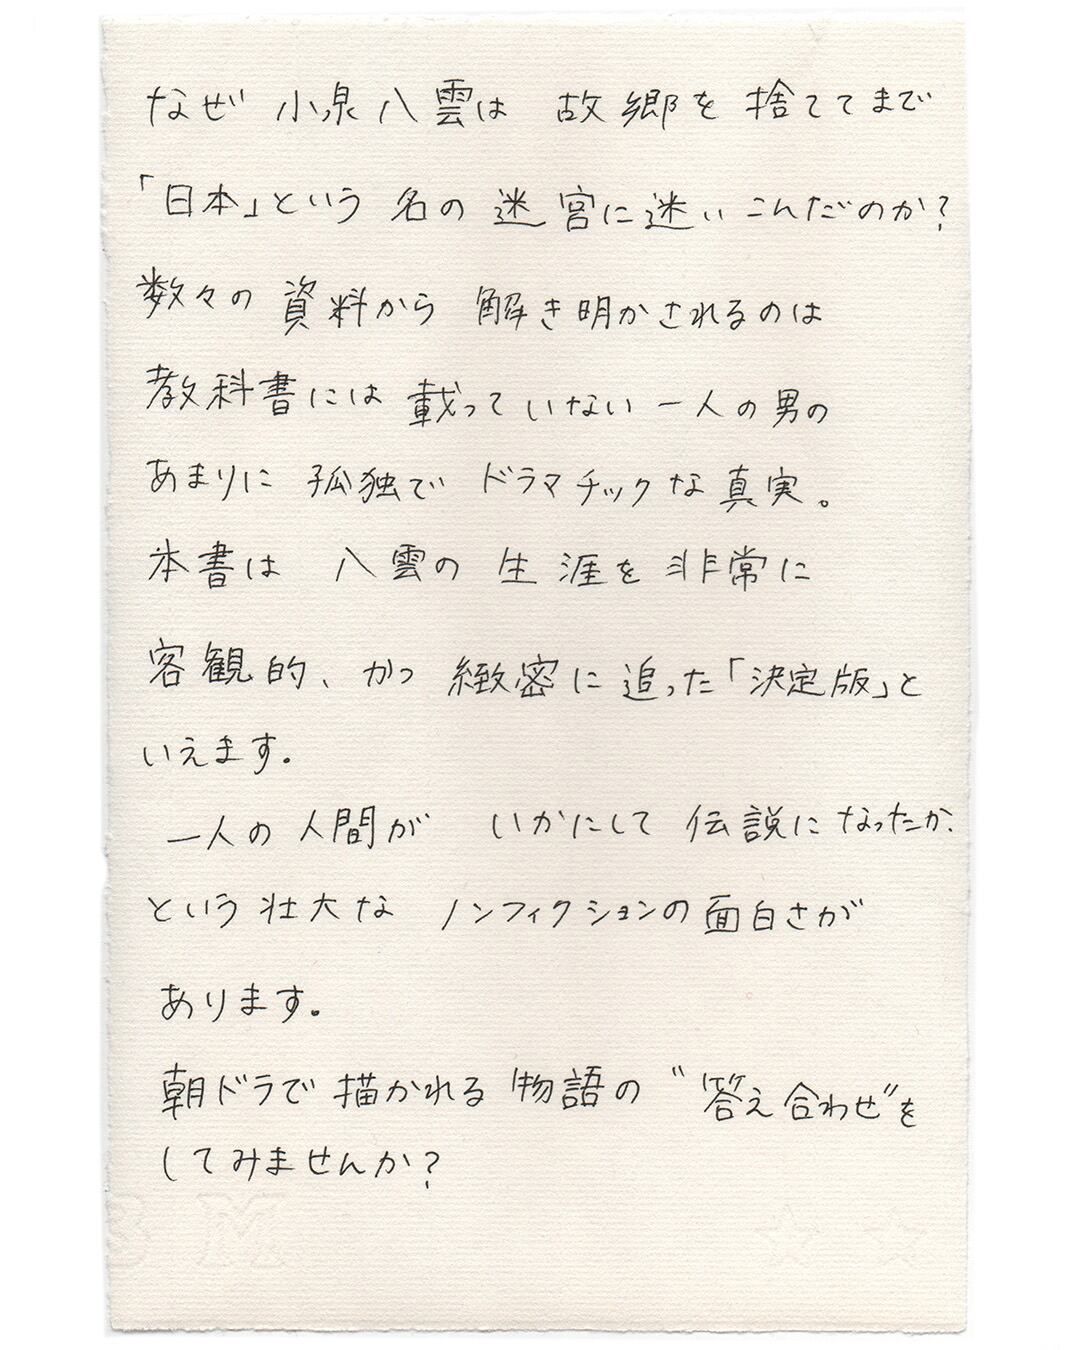 なぜ 小泉八雲は 故郷を捨ててまで
「日本」という 名の 迷宮に迷いこんだのか?
数々の 資料から 解き明かされるのは
教科書には 載っていない 一人の男の
あまりに 孤独で ドラマチックな真実。
本書は 八雲の 生涯を非常に
客観的、かつ 緻密に追った「決定版」と
いえます。
一人の人間が いかにして 伝説になったか、
という壮大な ノンフィクションの面白さが
あります。
朝ドラで描かれる物語の "答え合わせ"を
してみませんか?
3 M ☆ ☆